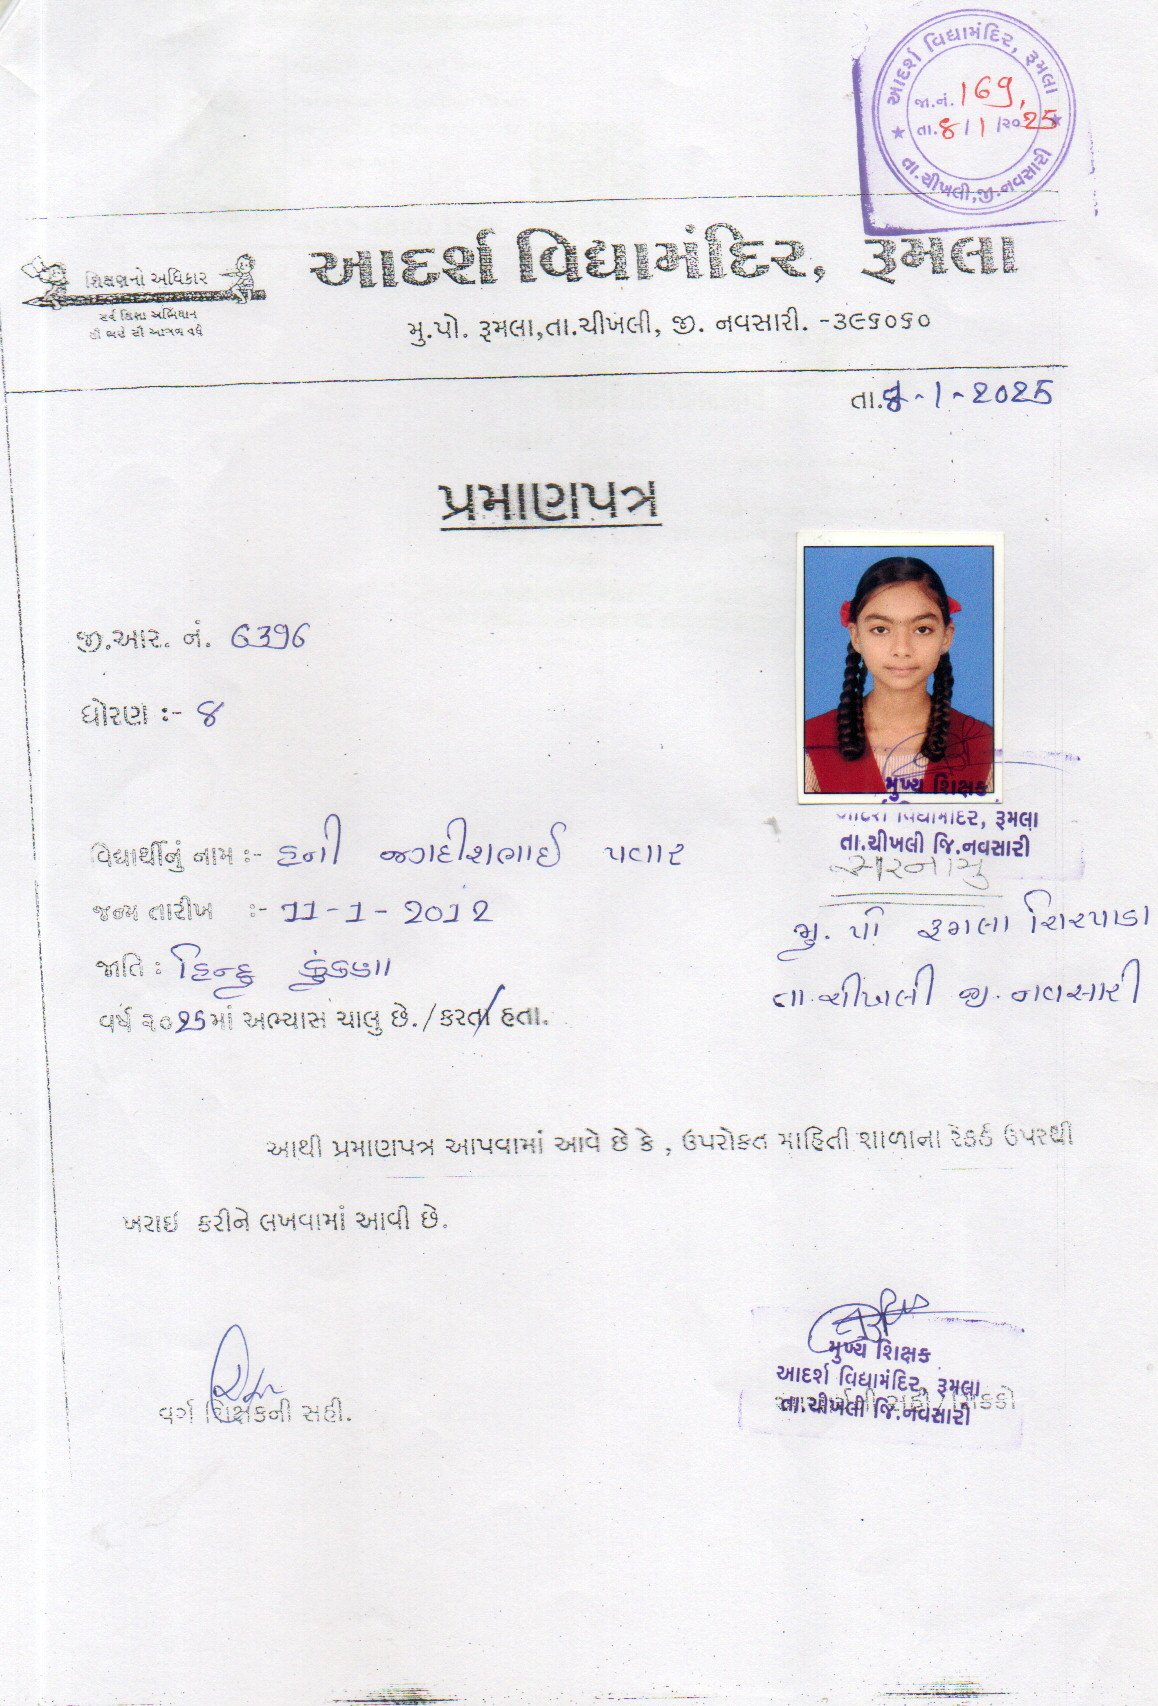 આદર્શ વિદ્યામંદિર, રૂમલા
જા.નં. 169,
તા. 8/1/૨૦25
તા.ચીખલી, જી.નવસારી
શિક્ષણનો અધિકાર
સર્વ શિક્ષા અભિયાન
આદર્શ વિદ્યામંદિર, રૂમલા
મુ.પો. રૂમલા,તા.ચીખલી, જી. નવસારી. -૩૯૬૦૬૦
તા.8-1-2025
પ્રમાણપત્ર
જી.આર. નં. 6396
ધોરણ :- 8
મુખ્ય શિક્ષક
આદર્શ વિદ્યામંદિર, રૂમલા
તા.ચીખલી જિ.નવસારી
વિદ્યાર્થીનું નામ :- હની જગદીશભાઈ પવાર
સરનામુ
જન્મ તારીખ :- 11-1-2012
મુ. પો રૂમલા
જાતિ : હિન્દુ કુંકણા
તા.ચીખલી જી.નવસારી
વર્ષ ૨૦25માં અભ્યાસ ચાલુ છે./કરતા હતા.
આથી પ્રમાણપત્ર આપવામાં આવે છે કે , ઉપરોકત માહિતી શાળાના રેકર્ડ ઉપરથી
ખરાઇ કરીને લખવામાં આવી છે.
વર્ગ શિક્ષકની સહી.
મુખ્ય શિક્ષક
આદર્શ વિદ્યામંદિર, રૂમલા
તા.ચીખલી જિ.નવસારી